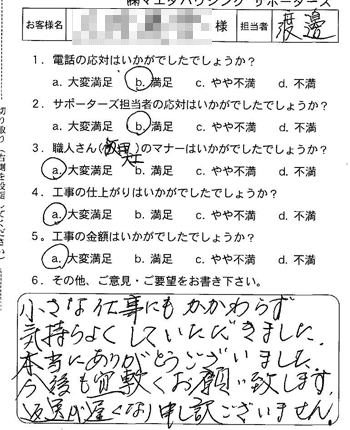 ㈱マエダハウジング サポーターズ
お客様名 様 担当者 渡邉
1．電話の応対はいかがでしたでしょうか？
a. 大変満足 b. 満足 c. やや不満 d. 不満
2．サポーターズ担当者の応対はいかがでしたでしょうか？
a. 大変満足 b. 満足 c. やや不満 d. 不満
3．職人さん( )のマナーはいかがでしたでしょうか？
a. 大変満足 b. 満足 c. やや不満 d. 不満
4．工事の仕上がりはいかがでしたでしょうか？
a. 大変満足 b. 満足 c. やや不満 d. 不満
5．工事の金額はいかがでしたでしょうか？
a. 大変満足 b. 満足 c. やや不満 d. 不満
6．その他、ご意見・ご要望をお書き下さい。
小さな仕事にもかかわらず
気持ちよくしていただきました。
本当にありがとうございました。
今後も宜敷くお願い致します。
返送が遅くなり申し訳ございません。